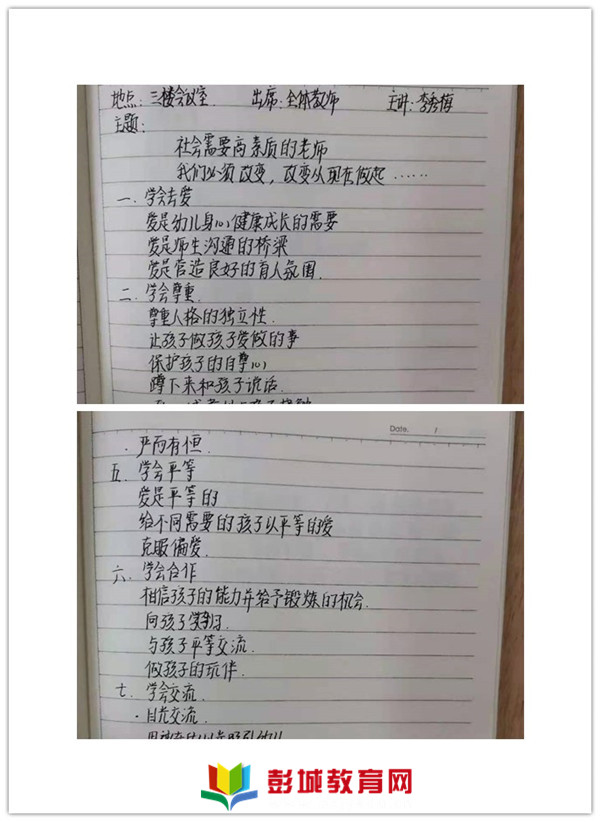 地点：三楼会议室 出席：全体教师 主讲：李秀梅
主题：
社会需要高素质的老师
我们必须改变，改变从现在做起……
一、学会去爱
爱是幼儿身心健康成长的需要
爱是师生沟通的桥梁
爱是营造良好的育人氛围.
二、学会尊重.
尊重人格的独立性.
让孩子做孩子爱做的事
保护孩子的自尊心
蹲下来和孩子说话.
Date. /
·严而有恒.
五、学会平等
爱是平等的
给不同需要的孩子以平等的爱
克服偏爱.
六、学会合作
相信孩子的能力并给予锻炼的机会.
向孩子学习.
与孩子平等交流.
做孩子的玩伴.
七、学会交流.
·目光交流.
彭城教育网